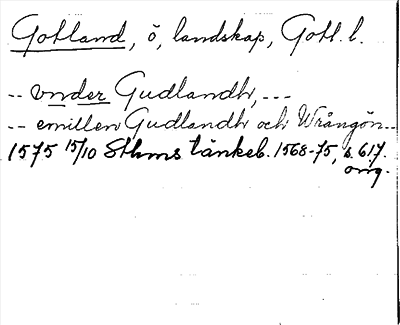 Gotland, ö, landskap, Gotl. l.
-- vnder Gudlandh, ---
-- emillen Gudlandh och Wrångön --
1575 15/10 Sthms tänkeb. 1568-75, s. 617.
orig.